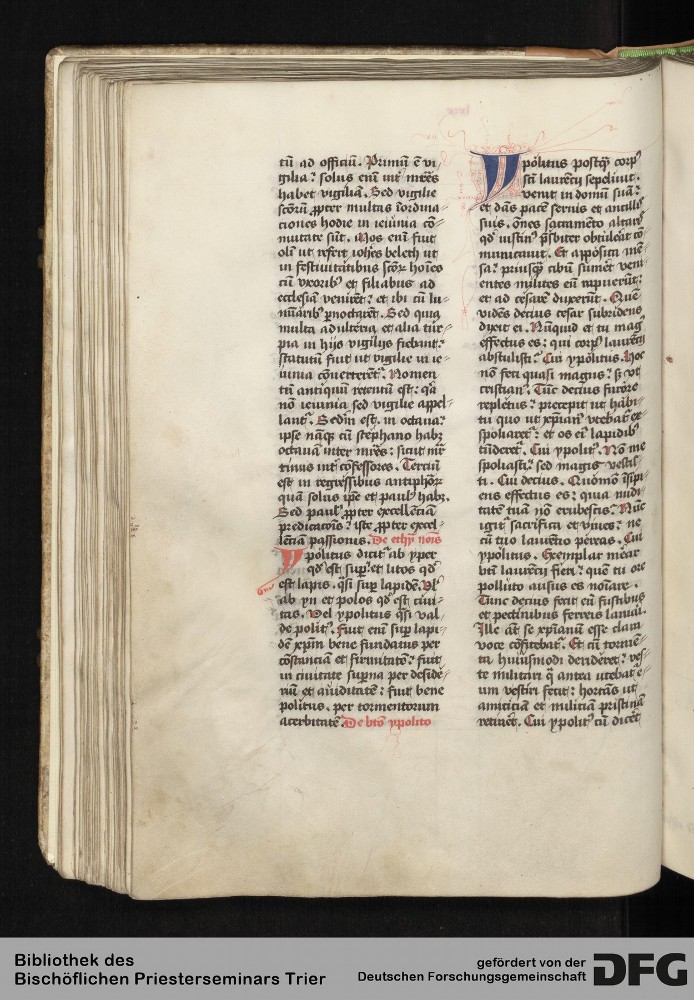 tū ad officiū. Primū ē vi
gilia: solus enī int̄ mr̄es
habet vigiliā. Sed vigilie
sc̄orū ꝓpter multas īordina
ciones hodie in ieiunia cō
mutate sūt. Mos enī fuit
olī ut refert ioh̄es beleth ut
in festiuitatibus sc̄oꝝ hoīes
cū vxoribꝰ et filiabus ad
ecclesiā venirēt: et ibi cū lu
nīaribꝰ ꝑnoctarēt. Sed quia
multa adulteria et alia tur
pia in hijs vigilijs fiebant:
statutū fuit ut vigilie in ie
iunia cōuerterēt᷑. Nomen
tn̄ antiquū retentū est: qꝛ
nō ieiunia sed vigilie appel
lant᷑. Sedm̄ est in octaua:
ipse nāqꝫ cū stephano habꝫ
octauā inter mr̄es: sicut mr̄
tinus int̄ cōfessores. Terciū
est in regressibus antiphōꝝ
quā solus ip̄e et paulꝰ habꝫ.
Sed paulꝰ ꝓpter excellēciā
predicacōis: iste ꝓpter excel
lēciā passionis. De ethy nois
Ypolitus dicit᷑ ab yper
qd̄ est sup̄ et litos qd̄
est lapis. q̄si sup̄ lapidē. Vl̄
ab yn et polos qd̄ est ciui
tas. Vel ypolitus q̄si val
de politꝰ. Fuit enī sup̄ lapi
dē xp̄m bene fundatus per
cōstanciā et firmitatē: fuit
in ciuitate sup̄na per deside
riū et auiditatē: fuit bene
politus. per tormentorum
acerbitatē. De bt̄o ypolito
Ypolitus postqꝫ corpꝰ
sc̄i laurēcij sepeliuit.
venit in domū suā:
et dās pacē seruis et ancillis
suis. ōnes sacramēto altaris
qd̄ iustinꝰ p̄sbiter obtulerat cō
municauit. Et apposita mē
sa: priusqꝫ cibū sumēt veni
entes milites eū rapuerūt:
et ad cesarē duxerūt. Quē
vidēs decius cesar subridens
dixit ei. Nūquid et tu magꝰ
effectus es: qui corpꝰ laurēcij
abstulisti: Cui ypolitus. Hoc
nō feci quasi magus: sꝫ vt
cristianꝰ. Tūc decius furore
repletus: precepit ut habi
tu quo ut xp̄ianꝰ vtebat᷑ ex
spoliaret᷑: et os eiꝰ lapidibꝰ
tūderet᷑. Cui ypolitꝰ. Nō me
spoliasti: sed magis vesti
ti. Cui decius. Quōmō īsipi
ens effectus es: quia nudi
tatē tuā nō erubescis: Nūc
igit᷑ sacrifica et viues: ne
cū tuo laurētio pereas. Cui
ypolitus. Exemplar mēar
bt̄i laurēcij fieri: quē tu ore
polluto ausus es noīare.
Tunc decius fecit eū fustibus
et pectinibus ferreis laniari.
Ille āt se xp̄ianū esse clara
voce cōfitebat᷑. Et cū tormē
ta huiusmodi derideret: ves
te militari q̄ antea utebat᷑ e
um vestiri fecit: hortās ut
amiciciā et miliciā pristinā
retineret. Cui ypolitꝰ cū dicēt
Bibliothek des
Bischöflichen Priesterseminars Trier
gefördert von der
Deutschen Forschungsgemeinschaft
DFG